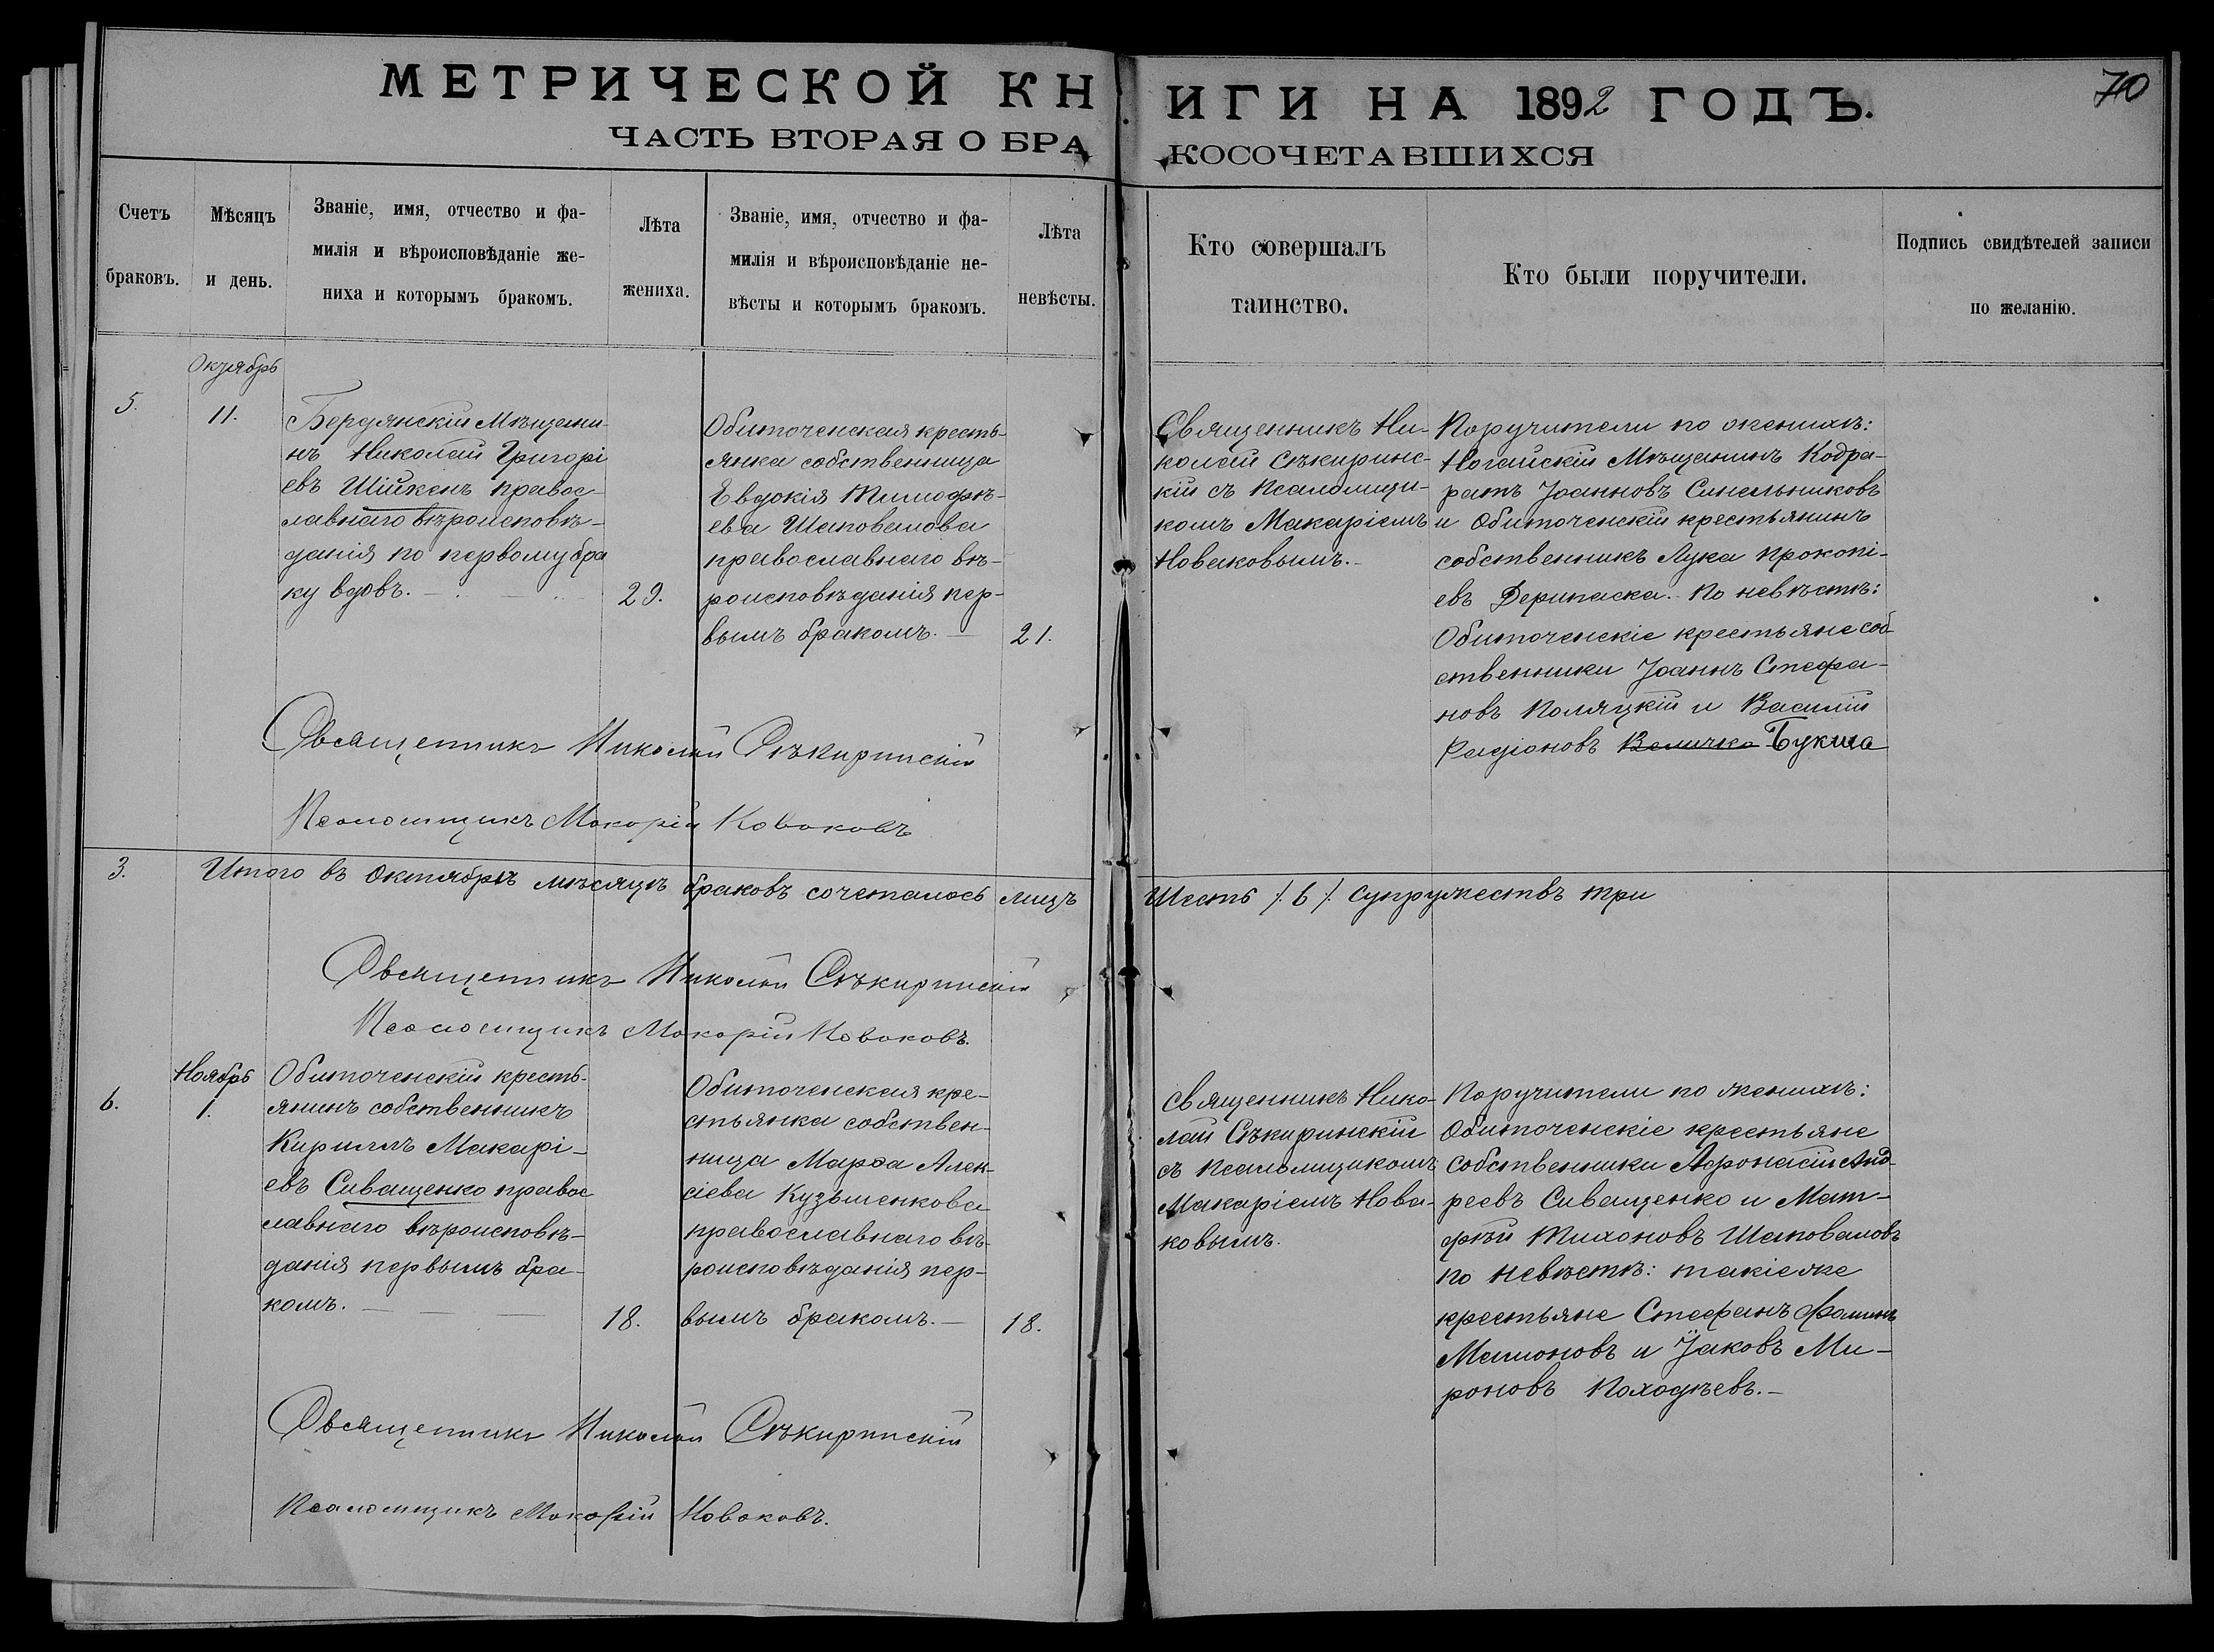 МЕТРИЧЕСКОЙ КНИГИ НА 1892 ГОДЪ.
70
ЧАСТЬ ВТОРАЯ О БРАКОСОЧЕТАВШИХСЯ
Счетъ
браковъ.
Мѣсяцъ
и день.
Званіе, имя, отчество и фа-
милія и вѣроисповѣданіе же-
ниха и которымъ бракомъ.
Лѣта
жениха.
Званіе, имя, отчество и фа-
милія и вѣроисповѣданіе не-
вѣсты и которымъ бракомъ.
Лѣта
невѣсты.
Кто совершалъ
таинство.
Кто были поручители.
Подпись свидѣтелей записи
по желанію.
Октябрь
5.
11.
Бердянскій Мѣщани-
нъ Николай Григорі
евъ Шійкенъ правос-
лавнаго вѣроисповѣ-
данія по первому бра
ку вдовъ.
29.
Обиточенская кресть-
янка собственница
Евдокія Тимофѣ-
ева Шаповалова
православнаго вѣ-
роисповѣданія пер-
вымъ бракомъ. —
21.
Священникъ Ни-
колай Сѣкиринс-
кій съ Псаломщи-
комъ Макаріемъ
Новаковымъ.-
Поручители по женихѣ:
Ногайскій Мѣщанинъ Кодра-
ратъ Іоанновъ Синельниковъ
и Обиточенскій крестьянинъ
собственникъ Лука Прокопі-
евъ Дерипаска. По невѣстѣ:
Обиточенскіе крестьяне соб-
ственники Іоаннъ Стефа-
новъ Поляцкій и Василій
Радіоновъ Величко Букша
Священникъ Николай Сѣкиринскій
Псаломщикъ Макарій Новаковъ
3.
Итого въ Октябрѣ мѣсяцѣ браковъ сочеталось лицъ Шесть /.6/. супружествъ три
Священникъ Николай Сѣкиринскій
Псаломщикъ Макарій Новаковъ.
Ноябрь
6.
1.
Обиточенскій кресть-
янинъ собственникъ
Кириллъ Макарі-
евъ Сиващенко правос
лавнаго вѣроисповѣ-
данія первымъ бра-
комъ. — — —
18.
Обиточенская кре-
стьянка собствен-
ница Марфа Алек-
сіева Кузьменкова
православнаго вѣ-
роисповѣданія пер-
вымъ бракомъ. —
18.
Священникъ Нико-
лай Сѣкиринскій
съ Псаломщикомъ
Макаріемъ Нова-
ковымъ.
Поручители по женихѣ:
Обиточенскіе крестьяне
собственники Афонасій Анд-
реевъ Сиващенко и Мат-
фѣй Тихоновъ Шаповаловъ
по невѣстѣ: такіеже
крестьяне Стефанъ Фоминъ
Мамоновъ и Іаковъ Ми-
роновъ Походѣевъ.-
Священникъ Николай Сѣкиринскій
Псаломщикъ Макарій Новаковъ.